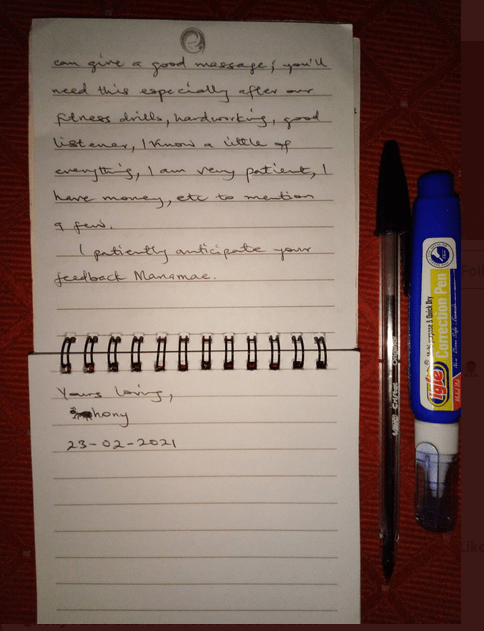 can give a good massage; you'll
need this especially after our
fitness drills, hardworking, good
listener, I know a little of
everything, I am very patient, I
have money, etc to mention
a few.
I patiently anticipate your
feedback Mansmae.
Yours loving,
hony
23-02-2021
igle
Multi-purpose & Quick Dry
Correction Pen